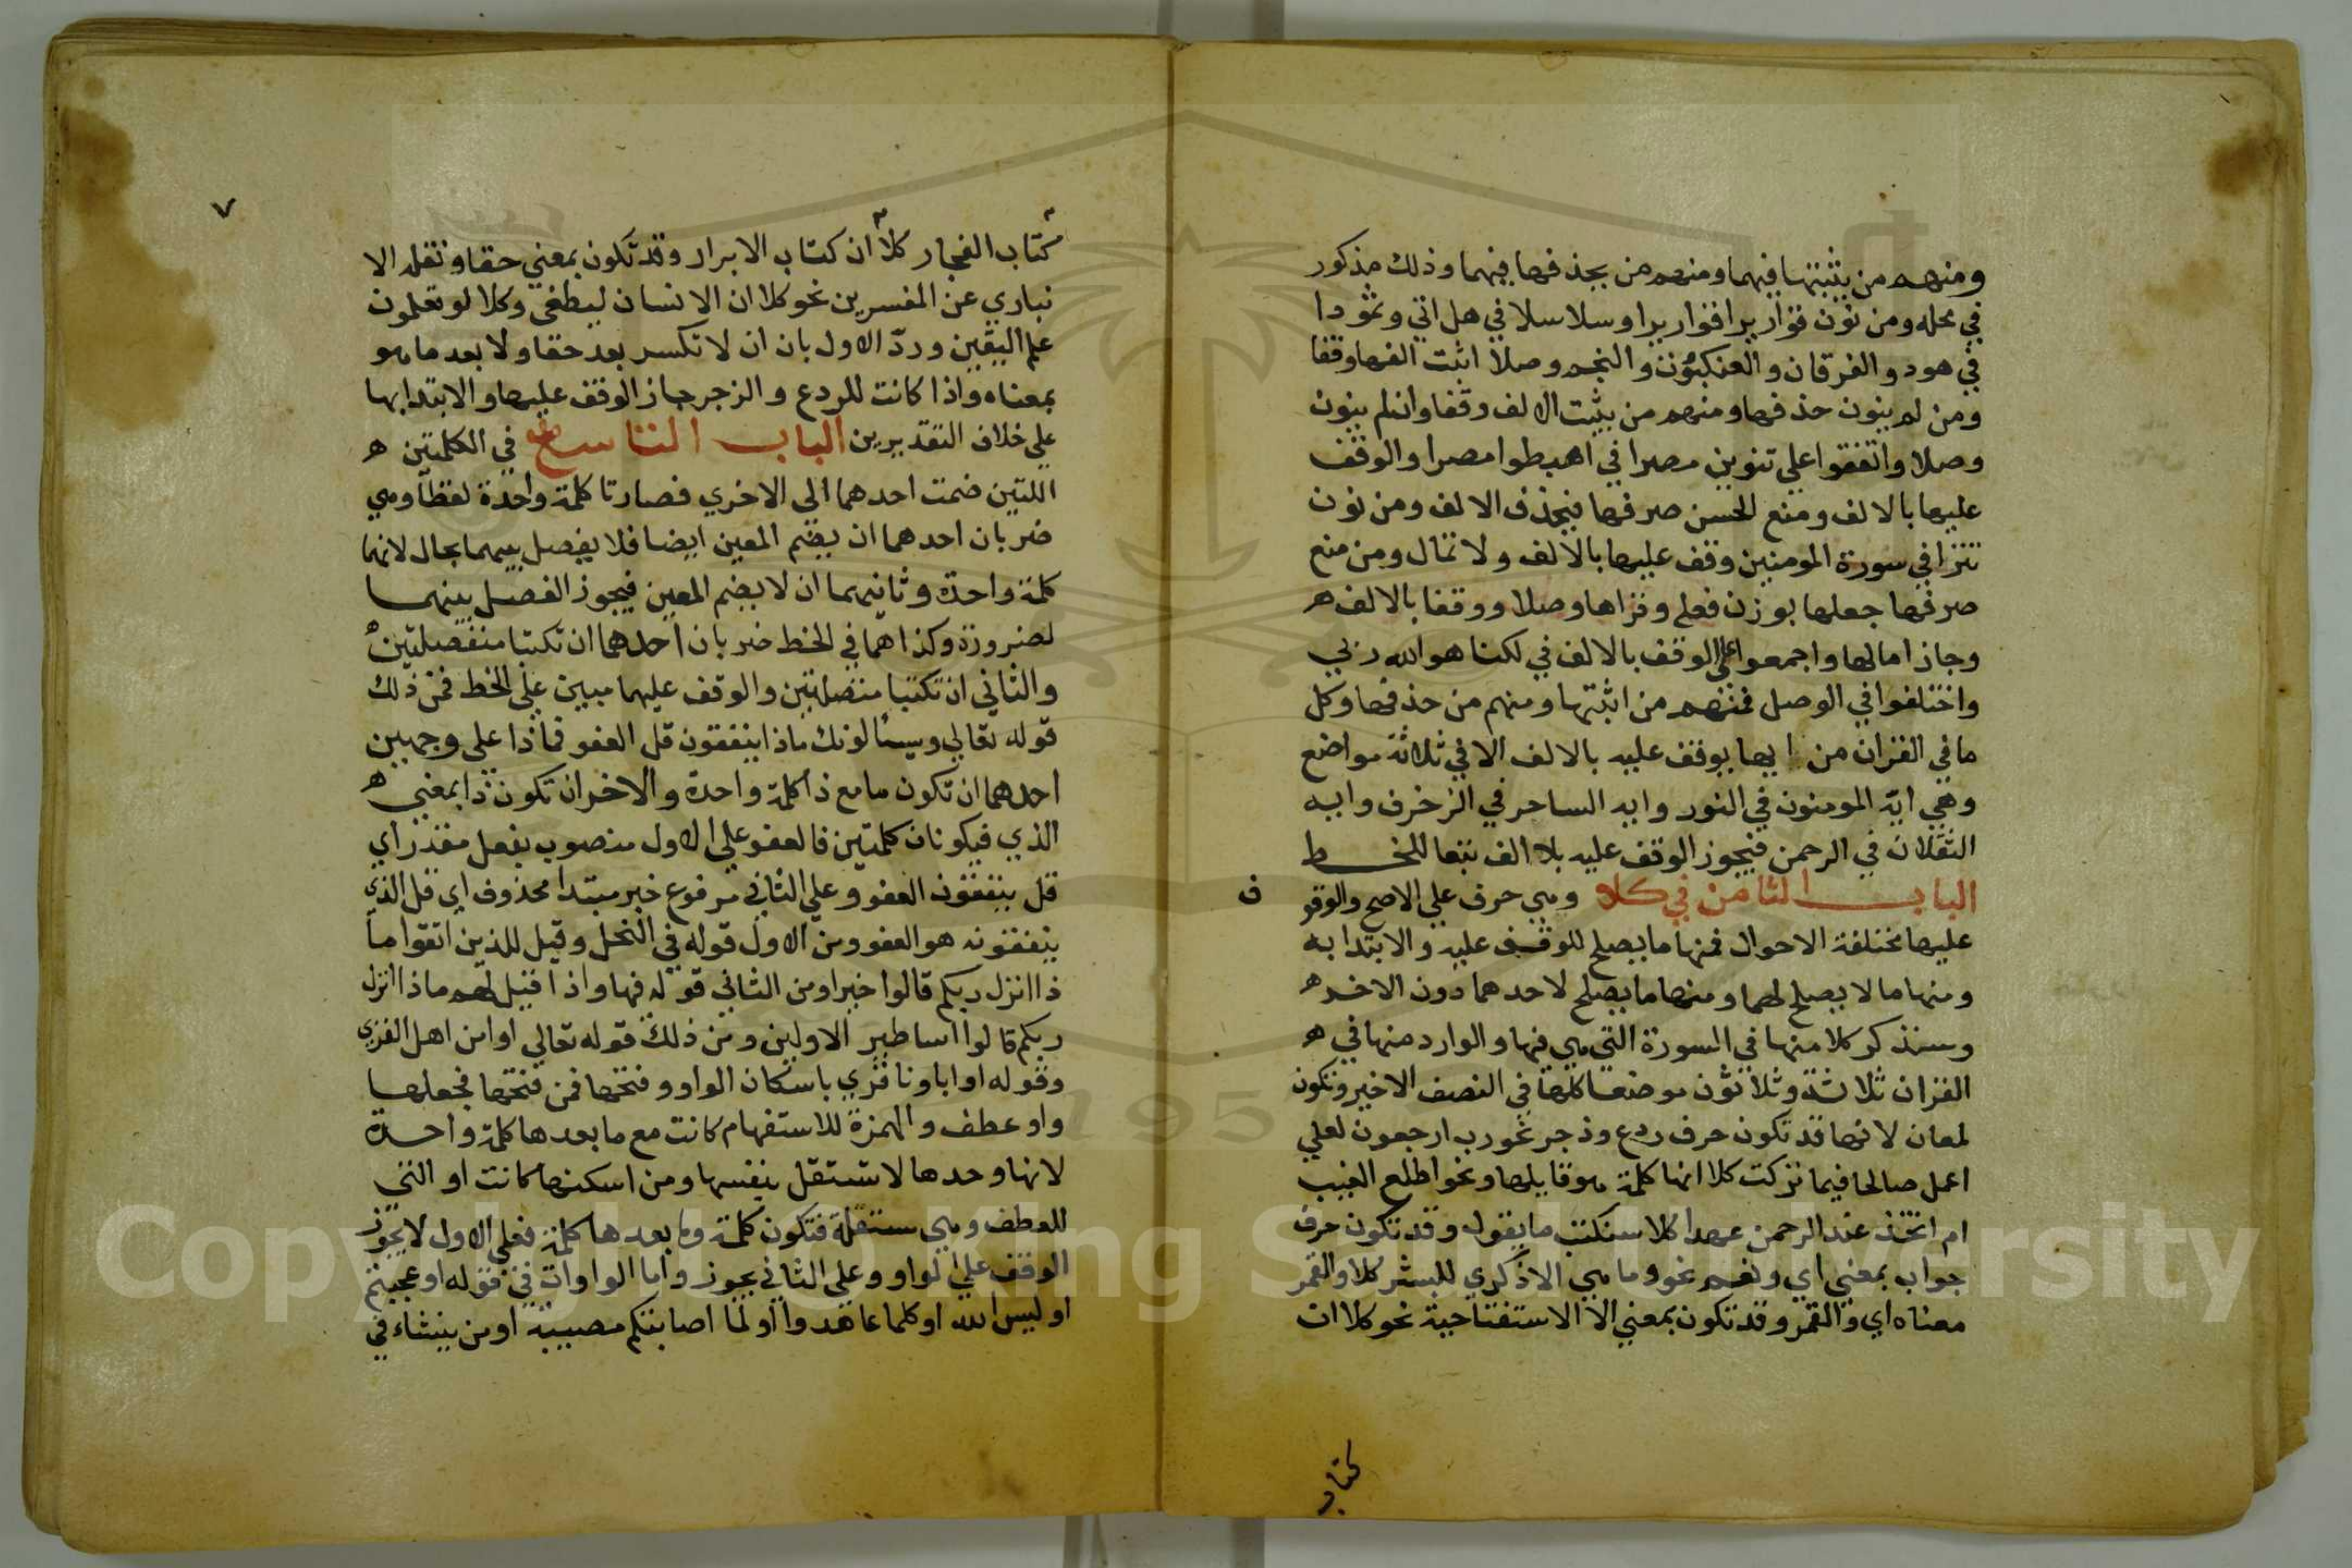 ومنهم من يثبتها فيهما ومنهم من يحذفها فيهما وذلك مذكور
في محله ومن نون قواريرا قواريرا وسلاسلا في هل اتي وثمودا
في هود والفرقان والعنكبوت والنجم وصلا اثبت الفها وقفا
ومن لم ينون حذفها ومنهم من يثبت الالف وقفا وان لم ينون
وصلا واتفقوا علي تنوين مصرا في اهبطوا مصرا والوقف
عليها بالالف ومنع الحسن صرفها فيحذف الالف ومن نون
تترا في سورة المومنين وقف عليها بالالف ولا تمال ومن منع
صرفها جعلها بوزن فعلي وقراها وصلا ووقفا بالالف ه
وجاز امالها واجمعوا علي الوقف بالالف في لكنا هو الله ربي
واختلفوا في الوصل فمنهم من اثبتها ومنهم من حذفها وكل
ما في القران من ايها يوقف عليه بالالف الا في ثلاثة مواضع
وهي ايه المومنون في النور وايه الساحر في الزخرف وايه
الثقلان في الرحمن فيجوز الوقف عليه بلا الف تبعا للخط
الباب الثامن في كلا وهي حرف علي الاصح والوقو
ف
عليها مختلفة الاحوال فمنها ما يصلح للوقف عليه والابتدا به
ومنها ما لا يصلح لهما ومنها ما يصلح لاحدهما دون الاخر ه
وسنذكر كلا منها في السورة التي هي فيها والوارد منها في ه
القران ثلاثة وثلاثون موضعا كلها في النصف الاخير وتكون
لمعان لانها قد تكون حرف ردع وزجر نحو رب ارجعون لعلي
اعمل صالحا فيما تركت كلا انها كلمة هو قايلها ونحو اطلع الغيب
ام اتخذ عند الرحمن عهدا كلا سنكتب ما يقول وقد تكون حرف
جواب بمعني اي ونعم نحو وما هي الا ذكري للبشر كلا والقمر
معناه اي والقمر وقد تكون بمعني الا الاستفتاحية نحو كلا ان
كتاب
٧
كتاب الفجار كلا ان كتاب الابرار وقد تكون بمعني حقا ونقله الا
نباري عن المفسرين نحو كلا ان الانسان ليطغي وكلا لو تعلمون
علم اليقين وردّ الاول بان ان لا تكسر بعد حقا ولا بعد ما هو
بمعناه واذا كانت للردع والزجر جاز الوقف عليها والابتدا بها
علي خلاف التقديرين الباب التاسع في الكلمتين ه
اللتين ضمت احدهما الى الاخري فصارتا كلمة واحدة لفظا وهي
ضربان احدهما ان يضم المعين ايضا فلا يفصل بينهما بحال لانهما
كلمة واحدة وثانيهما ان لا يضم المعين فيجوز الفصل بينهما
لضرورة وكذا هما في الخط ضربان احدهما ان تكتبا منفصلتين
والثاني ان تكتبا متصلتين والوقف عليهما مبين علي الخط فمن ذلك
قوله تعالي ويسألونك ماذا ينفقون قل العفو فماذا علي وجهين
احدهما ان تكون ما مع ذا كلمة واحدة والاخر ان تكون ذا بمعني ه
الذي فيكونان كلمتين فالعفو علي الاول منصوب بفعل مقدر اي
قل ينفقون العفو وعلي الثاني مرفوع خبر مبتدا محذوف اي قل الذي
ينفقونه هو العفو ومن الاول قوله في النحل وقيل للذين اتقوا ما
ذا انزل ربكم قالوا خيرا ومن الثاني قوله فيها واذا قيل لهم ماذا انزل
ربكم قالوا اساطير الاولين ومن ذلك قوله تعالي او امن اهل القري
وقوله او اباونا قري باسكان الواو وفتحها فمن فتحها فجعلها
واو عطف والهمزة للاستفهام كانت مع ما بعدها كلمة واحدة
لانها وحدها لا تستقل بنفسها ومن اسكنها كانت او التي
للعطف وهي مستقلة فتكون كلمة وما بعدها كلمة فعلي الاول لا يجوز
الوقف علي الواو وعلي الثاني يجوز واما الواوات في قوله اوعجبتم
اوليس الله اوكلما عاهدوا اولما اصابتكم مصيبة اومن ينشاء في
Copyright © King Saud University
195